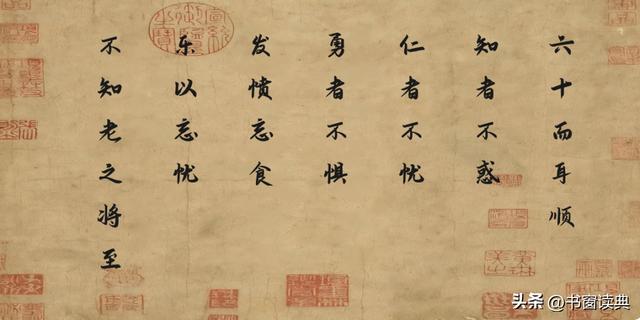 六十而耳顺
知者不惑
仁者不忧
勇者不惧
发愤忘食
乐以忘忧
不知老之将至
头条 @书窗读典